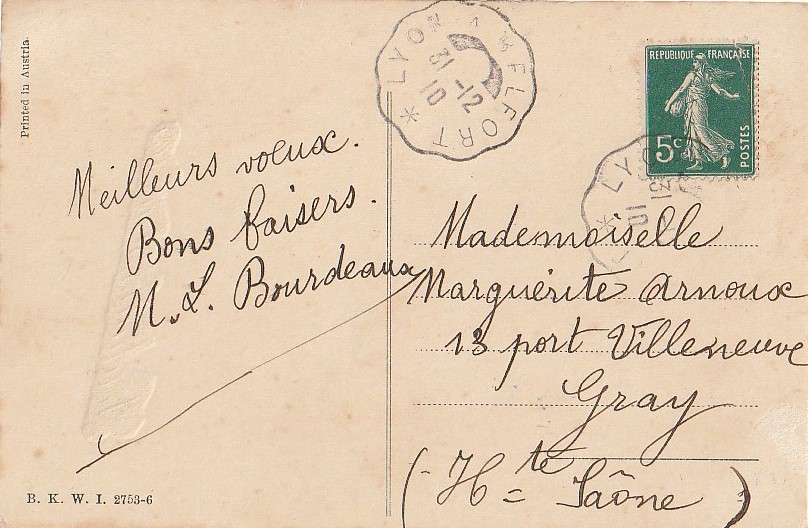 Printed in Austria.
LYON A BELFORT *
31 -12
10
REPUBLIQUE FRANÇAISE
5c
POSTES
LYON
Meilleurs voeux.
Bons baisers.
M. L. Bourdeaux
Mademoiselle
Marguérite Arnoux
13 port Villeneuve
Gray
(- Hte Saône)
B. K. W. I. 2753-6